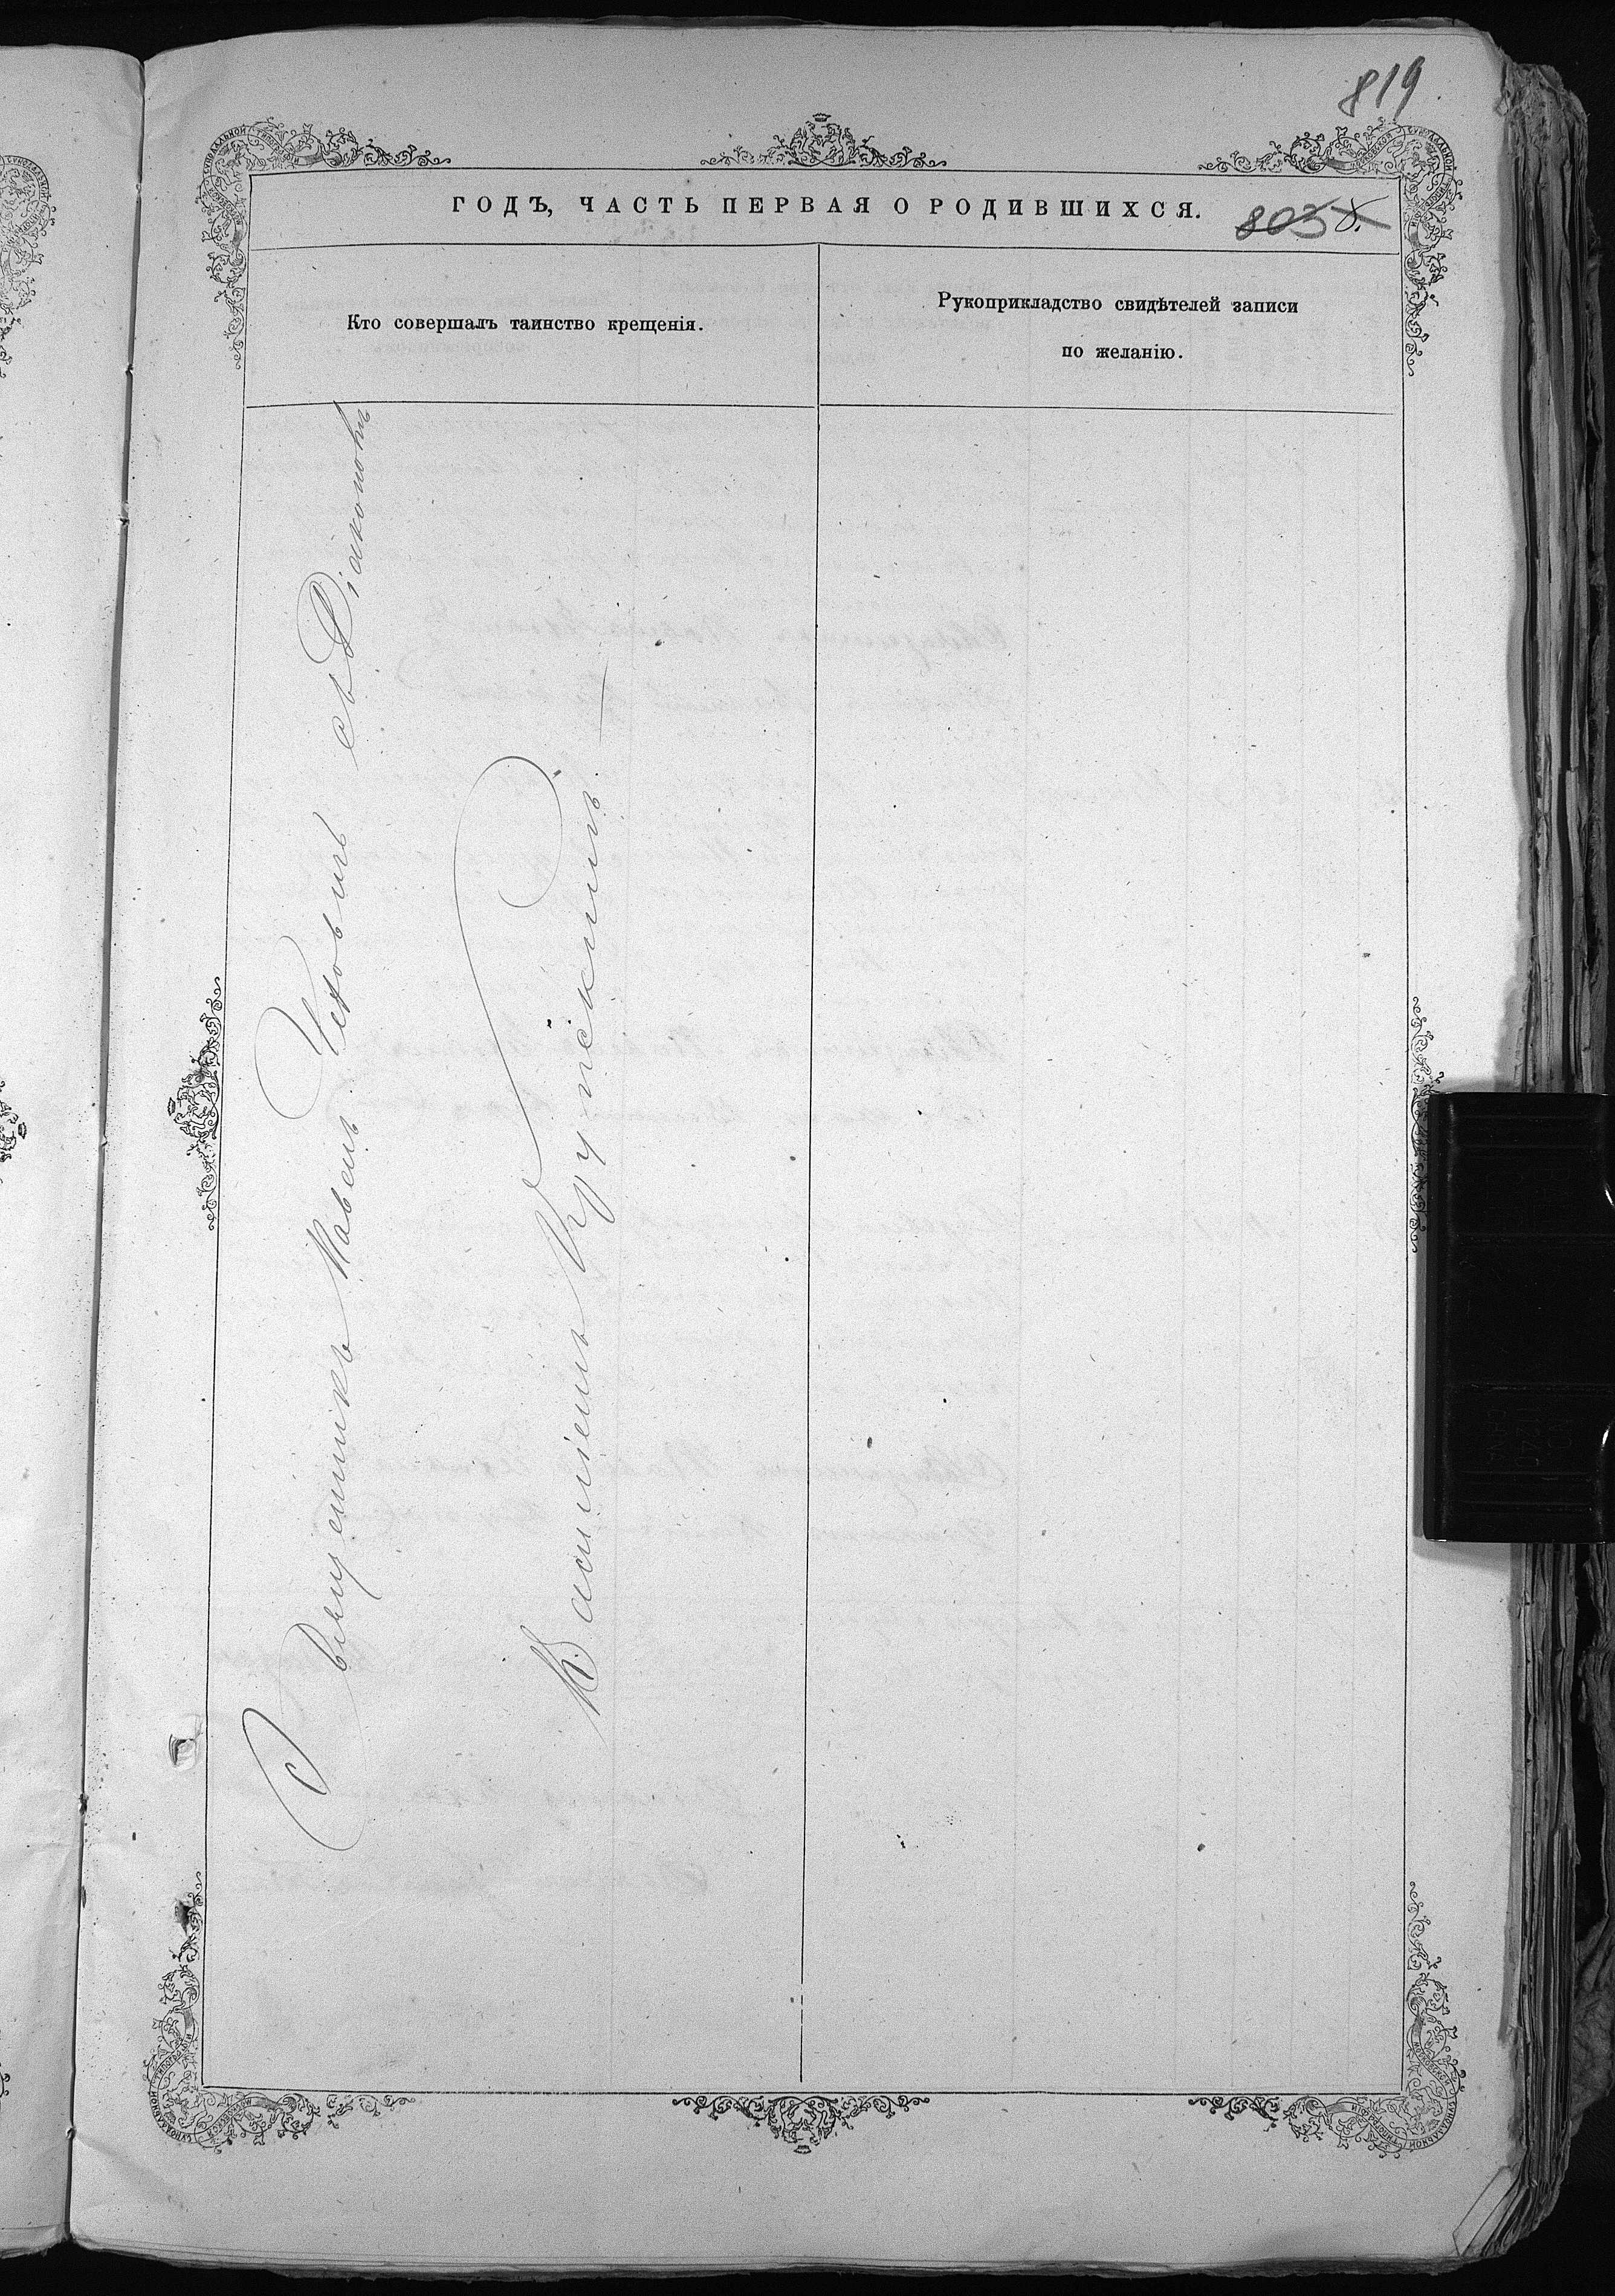 819
ГОДЪ, ЧАСТЬ ПЕРВАЯ О РОДИВШИХСЯ.
803
Кто совершалъ таинство крещенія.
Рукоприкладство свидѣтелей записи
по желанію.
Священникъ Павелъ Чехович съ Діакономъ
Василіемъ Крупскимъ.